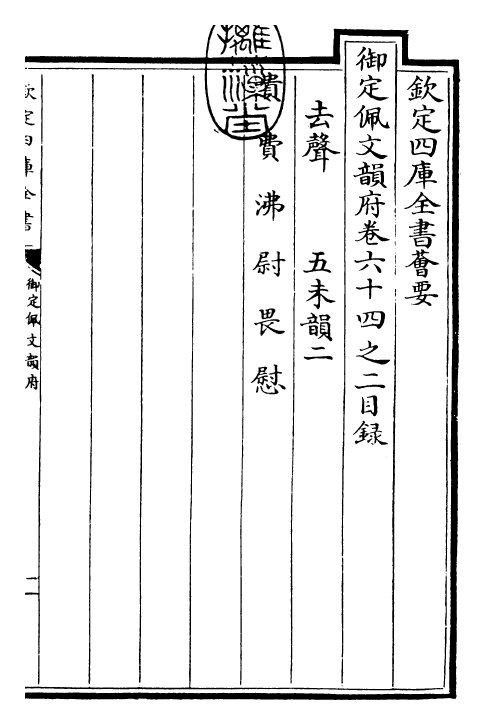 摛藻堂
欽定四庫全書薈要
御定佩文韻府卷六十四之二目錄
去聲 五未韻二
貴 費 沸 尉 畏 慰
欽定四庫全書
御定佩文韻府